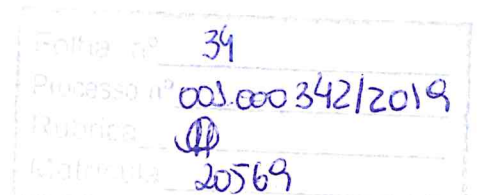 Folha nº 34
Processo nº 001.000342/2019
Rubrica
Matrícula 20569